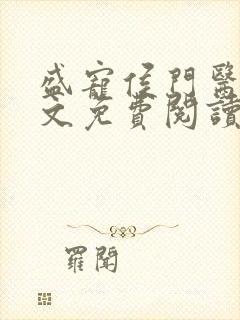 盛寵侯門醫
文免費閱讀
羅聞